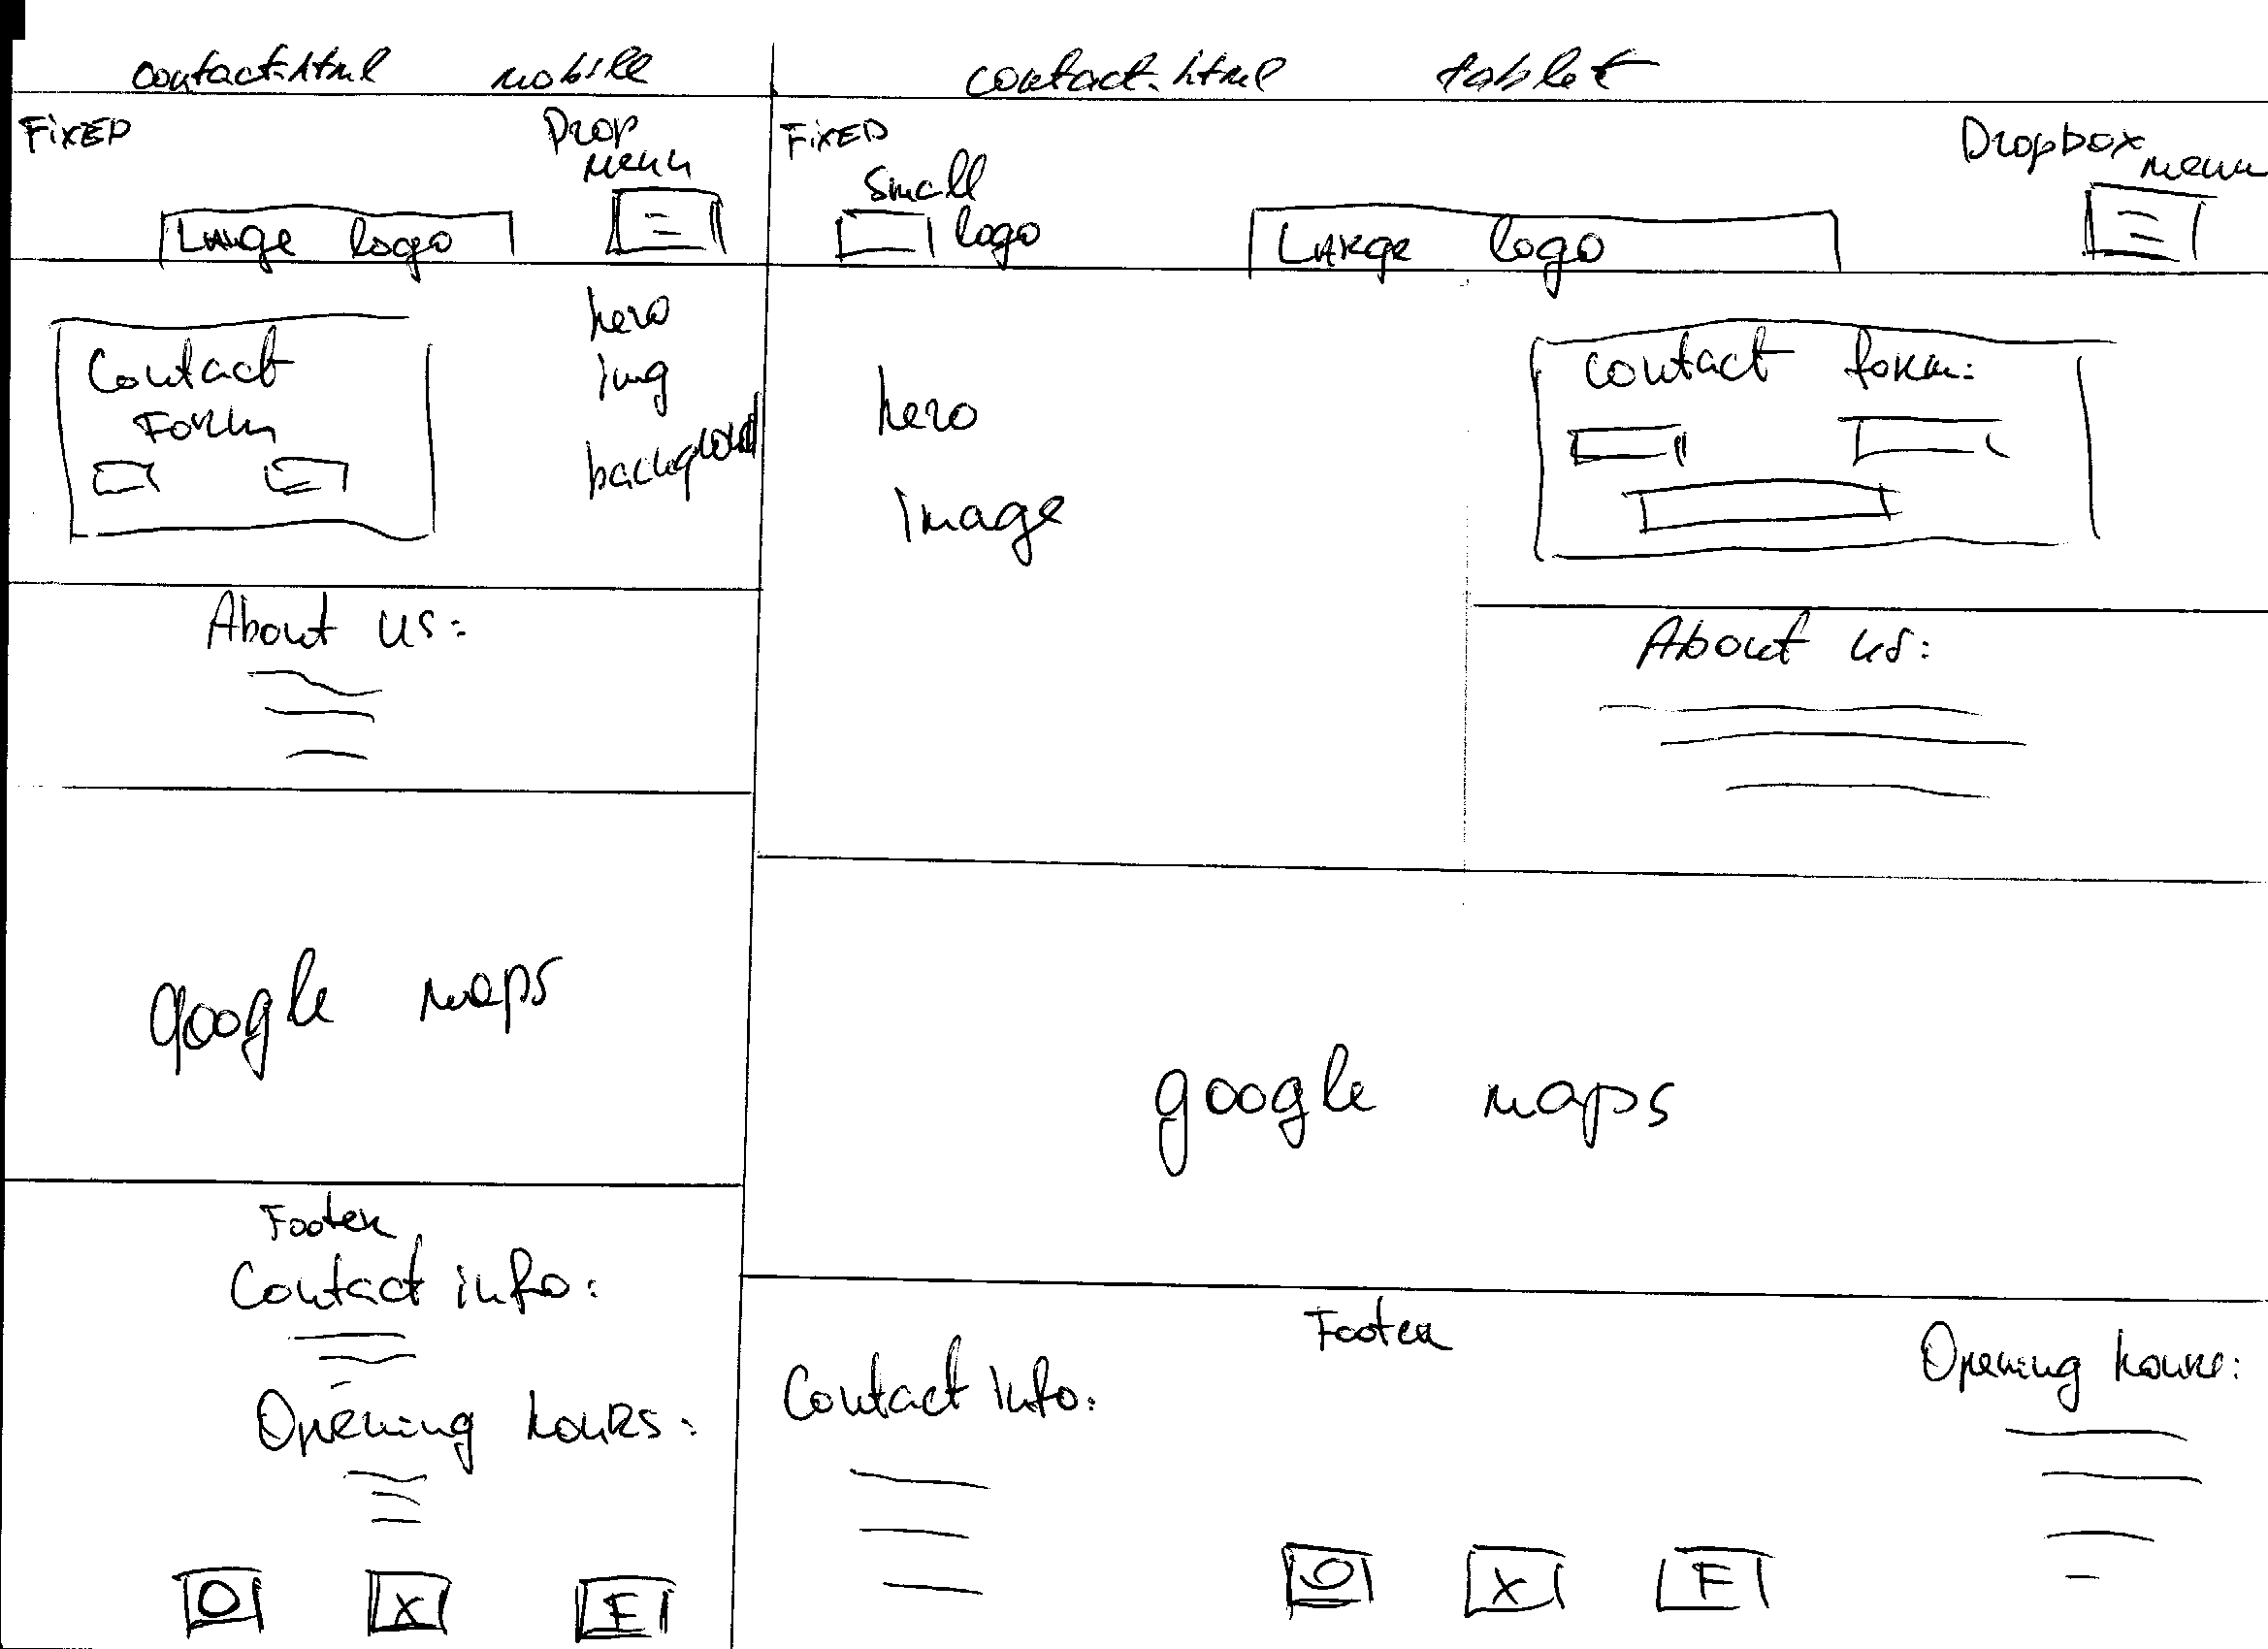 contact.html mobile
FIXED
Drop
menu
Large logo
Contact
Form
hero
img
background
About us:
google maps
Footer
Contact info:
Opening hours:
O X F
contact.html tablet
FIXED
Small
logo
LARge logo
Dropbox
menu
hero
image
contact form:
About us:
google maps
Footer
Contact info:
Opening hours:
O X F